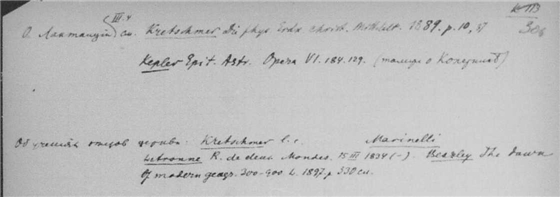 III, 4
О Лактанции см. Kretschmer Die phys. Erdk. christ. Mittelalt. 1889. p. 10, 37
Kepler Epit. Astr. Opera VI. 184. 129. (таблица о
Об учении отцов церкви: Kretschmer l. c. Marinelli
Letronne R. de deux Mondes. 15 III 1834 (-). Beazley The dawn
of modern geogr. 300-900. L. 1897, p 330 сл.